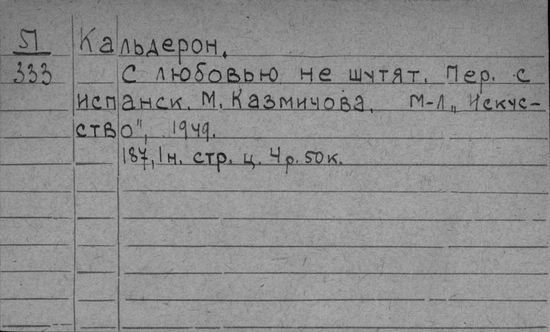 51 Кальдерон.
333 С любовью не шутят. Пер. с
испанск. М. Казмичова. М-Л „Искус-
ство", 1949.
187, 1н. стр. ц. 4р. 50к.